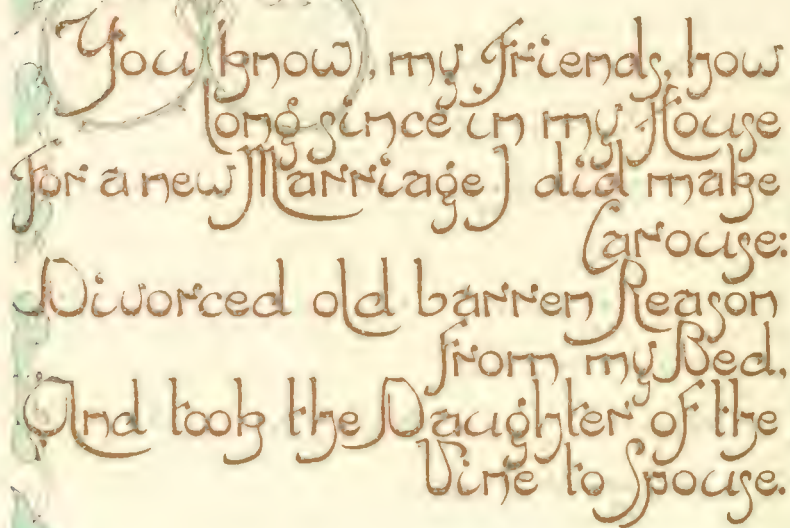 You know, my Friends, how
long since in my House
For a new Marriage I did make
Carouse:
Divorced old barren Reason
from my Bed,
And took the Daughter of the
Vine to Spouse.